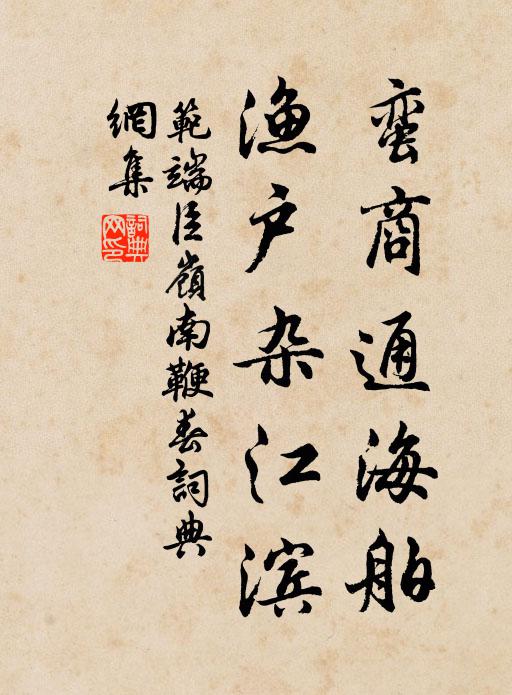 蛮商通海舶
渔户杂江滨
範端臣嶺南鞭春詞典
網集
詞典
网印